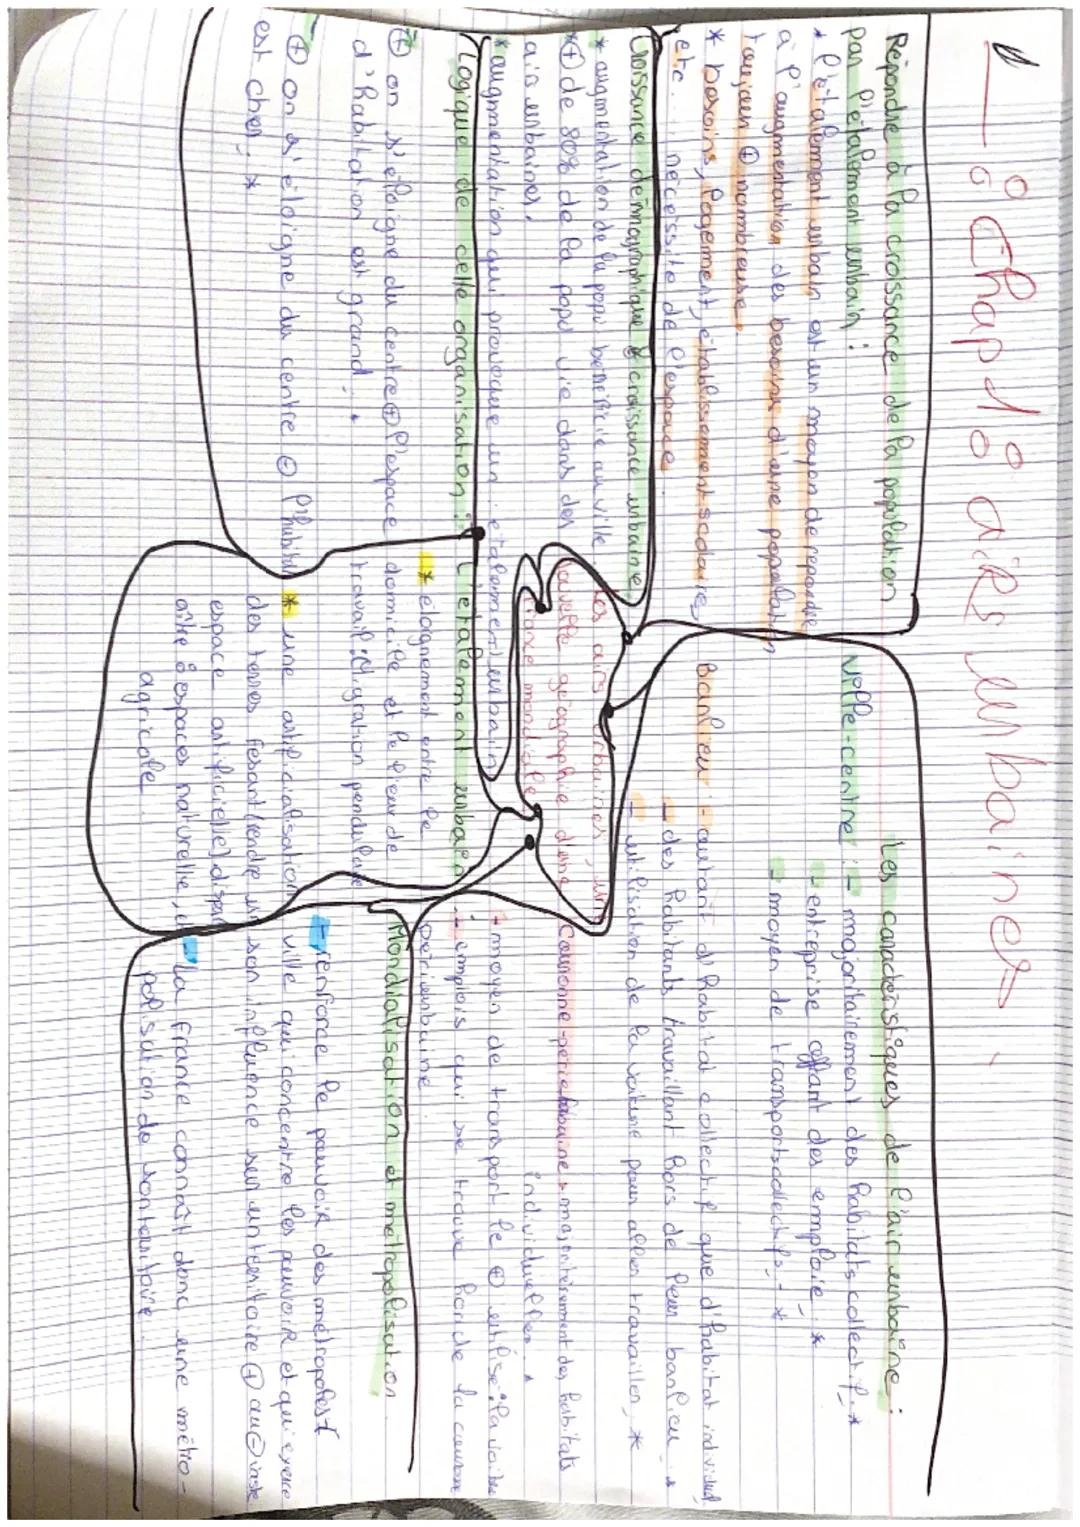 Chap 1 : aires urbaines
Répondre à la croissance de la population
par l'étalement urbain :
* l'étalement urbain est un moyen de repondre
à l'augmentation des besoins d'une population
toujours ⊕ nombreuse.
* besoins, logement, établissement scolaire,
etc... nécessite de l'espace
Croissance démographique & croissance urbaine
* augmentation de la popu bénéficie au ville
*⊕ de 80% de la popu vie dans des
airs urbaines.
* augmentation qui provoque un étalement urbain
Logique de celle organisation : l'étalement urbain
⊕ on s'éloigne du centre ⊕ l'espace
d'habitation est grand.
⊕ on s'éloigne du centre ⊖ l'habitat
est cher, *
* éloignement entre le
domicile et le lieux de
travail : Migration pendulaire
* une artificialisation
des terres fesant tendre un
espace artificielle) disp
aitre espaces naturelle,
agricole
Les airs urbaines, une
nouvelle géographie d'une
France mondialisée
Les caractéristiques de l'air urbaine :
Ville-centre : - majoritairement des habitats collectif, *
- entreprise offrant des emploie, *
- moyen de transports collectifs, - *
Banlieu : - autant d'habitat collectif que d'habitat individuel
- des habitants travaillant hors de leur banlieu
- utilisation de la voiture pour aller travailler, *
Couronne-périeurbaine : majoritérement des habitats
individuelles.
- moyen de transport le ⊕ utilisé : la voiture
- emplois qui se trouve hors de la couronne
périeurbaine.
Mondialisation et métropolisation
- renforce le pouvoir des métropoles (
ville qui concentre les pouvoir et qui exerce
son influence sur un territoire ⊕ ou ⊖ vaste
- la france connaît donc une métro-
polisation de son territoire.